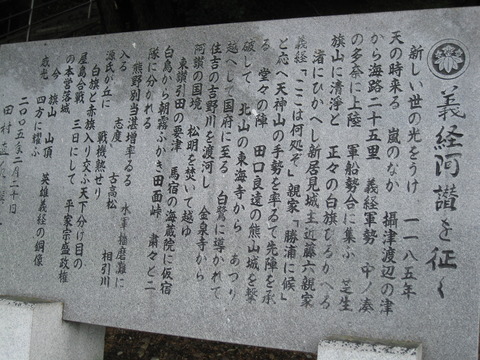 義経阿讃を征く
新しい世の光をうけ 一一八五年
天の時来る 嵐のなか 攝津渡辺の津
から海路二十五里 義経軍勢 中ノ湊
の多奈に上陸 軍船勢合に集ふ 芝生
旗山に清浄と 正々の白旗ひるがへる
渚にひかへし新居見城主近藤六親家
義経「ここは何処ぞ」親家「勝浦に候」
と応へ天神山の手勢を率るて先陣を承
る 堂々の陣 田口良遠の熊山城を撃
破して 北山の東海寺から あづり
越へして国府に至る 白鷺に導かれて
住吉の吉野川を渡河し 金泉寺から
阿讃の国境 松明を焚いて越ゆ
東讃引田の要津 馬宿の海蔵院に仮宿
白鳥から朝霧ふかき田面峠 粛々と二
隊に分かれる
熊野別当湛増率ゐる 水軍播磨灘に
入る 志度 古高松 相引川
源氏が丘に 戦機熱せり
白旗と赤旗入り交ふ天下分け目の
屋島合戦 三日にして 平家宗盛政権
の本営落城
今 旗山 山頂 英雄義経の銅像
威光 四方に耀ふ
二〇〇五年二月二十日
田村